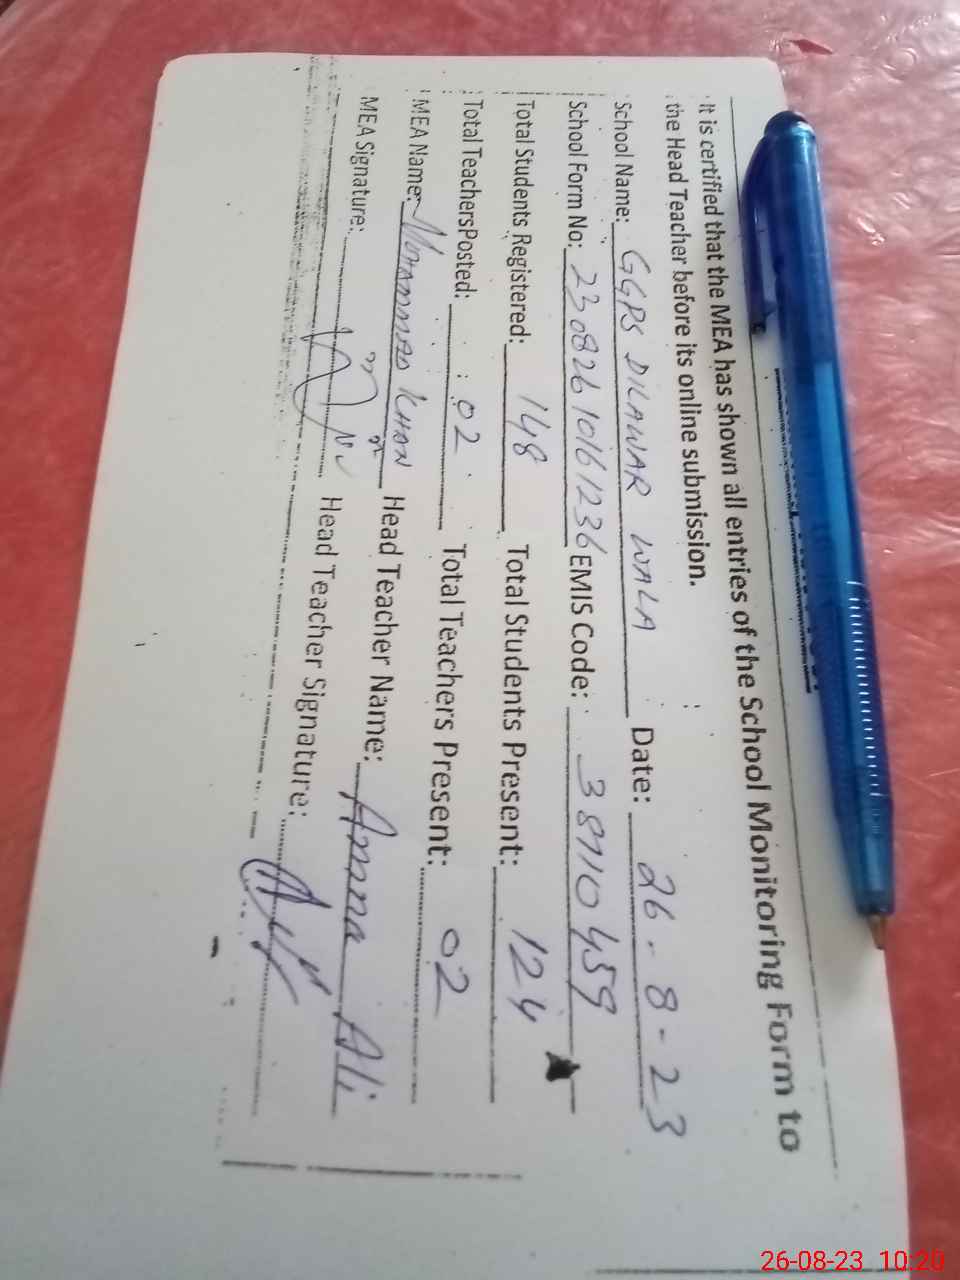 It is certified that the MEA has shown all entries of the School Monitoring Form to
the Head Teacher before its online submission.
School Name: GGPS DILAWAR WALA Date: 26-8-23
School Form No: 23082610161236 EMIS Code: 38110459
Total Students Registered: 148 Total Students Present: 124
Total TeachersPosted: 02 Total Teachers Present: 02
MEA Name: MOHAMMAD KHAN Head Teacher Name: Amna Ali
MEA Signature: Head Teacher Signature:
26-08-23 10:20